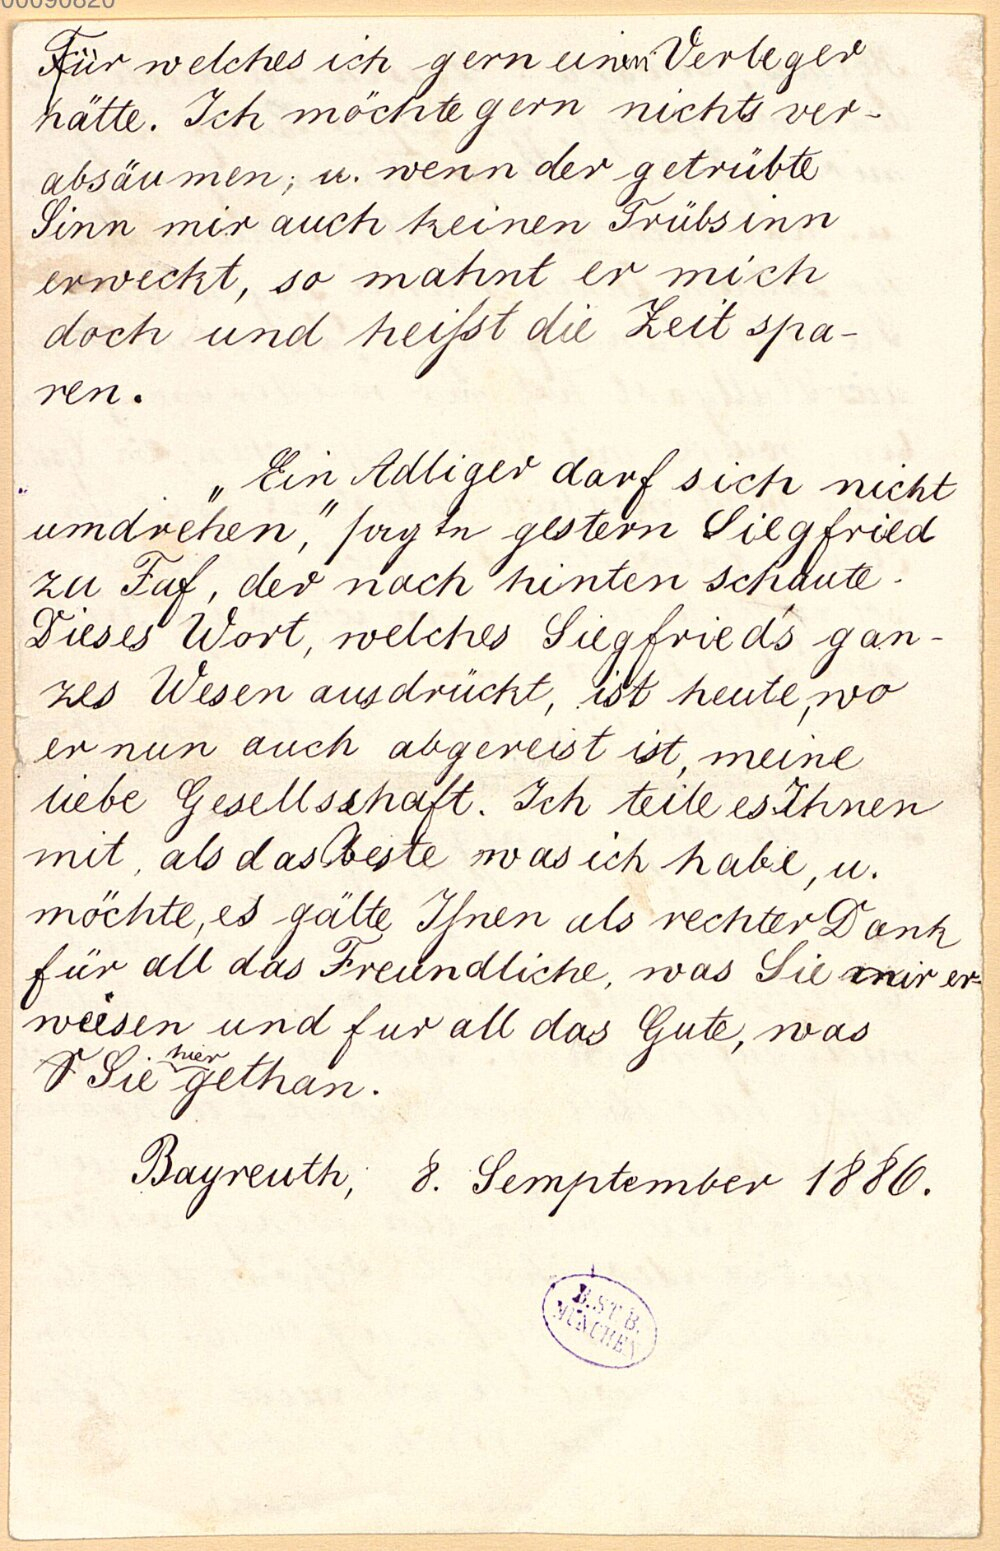 00090820
Für welches ich gern einen Verleger
hätte. Ich möchte gern nichts ver-
absäumen; u. wenn der getrübte
Sinn mir auch keinen Trübsinn
erweckt, so mahnt er mich
doch und heisst die Zeit spa-
ren.
„Ein Adliger darf sich nicht
umdrehen," sagte gestern Siegfried
zu Faf, der nach hinten schaute.
Dieses Wort, welches Siegfried's gan-
zes Wesen ausdrückt, ist heute, wo
er nun auch abgereist ist, meine
liebe Gesellschaft. Ich teile es Ihnen
mit, als das beste was ich habe, u.
möchte, es gälte Ihnen als rechter Dank
für all das Freundliche, was Sie mir er-
weisen und fur all das Gute, was
Sie hier gethan.
Bayreuth, 8. Semptember 1886.
B.ST.B.
MÜNCHEN